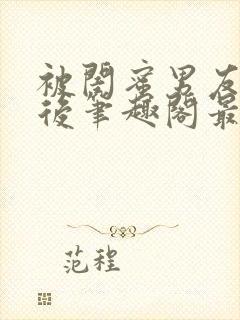 被閤蜜男友
後筆趣閣最
范程